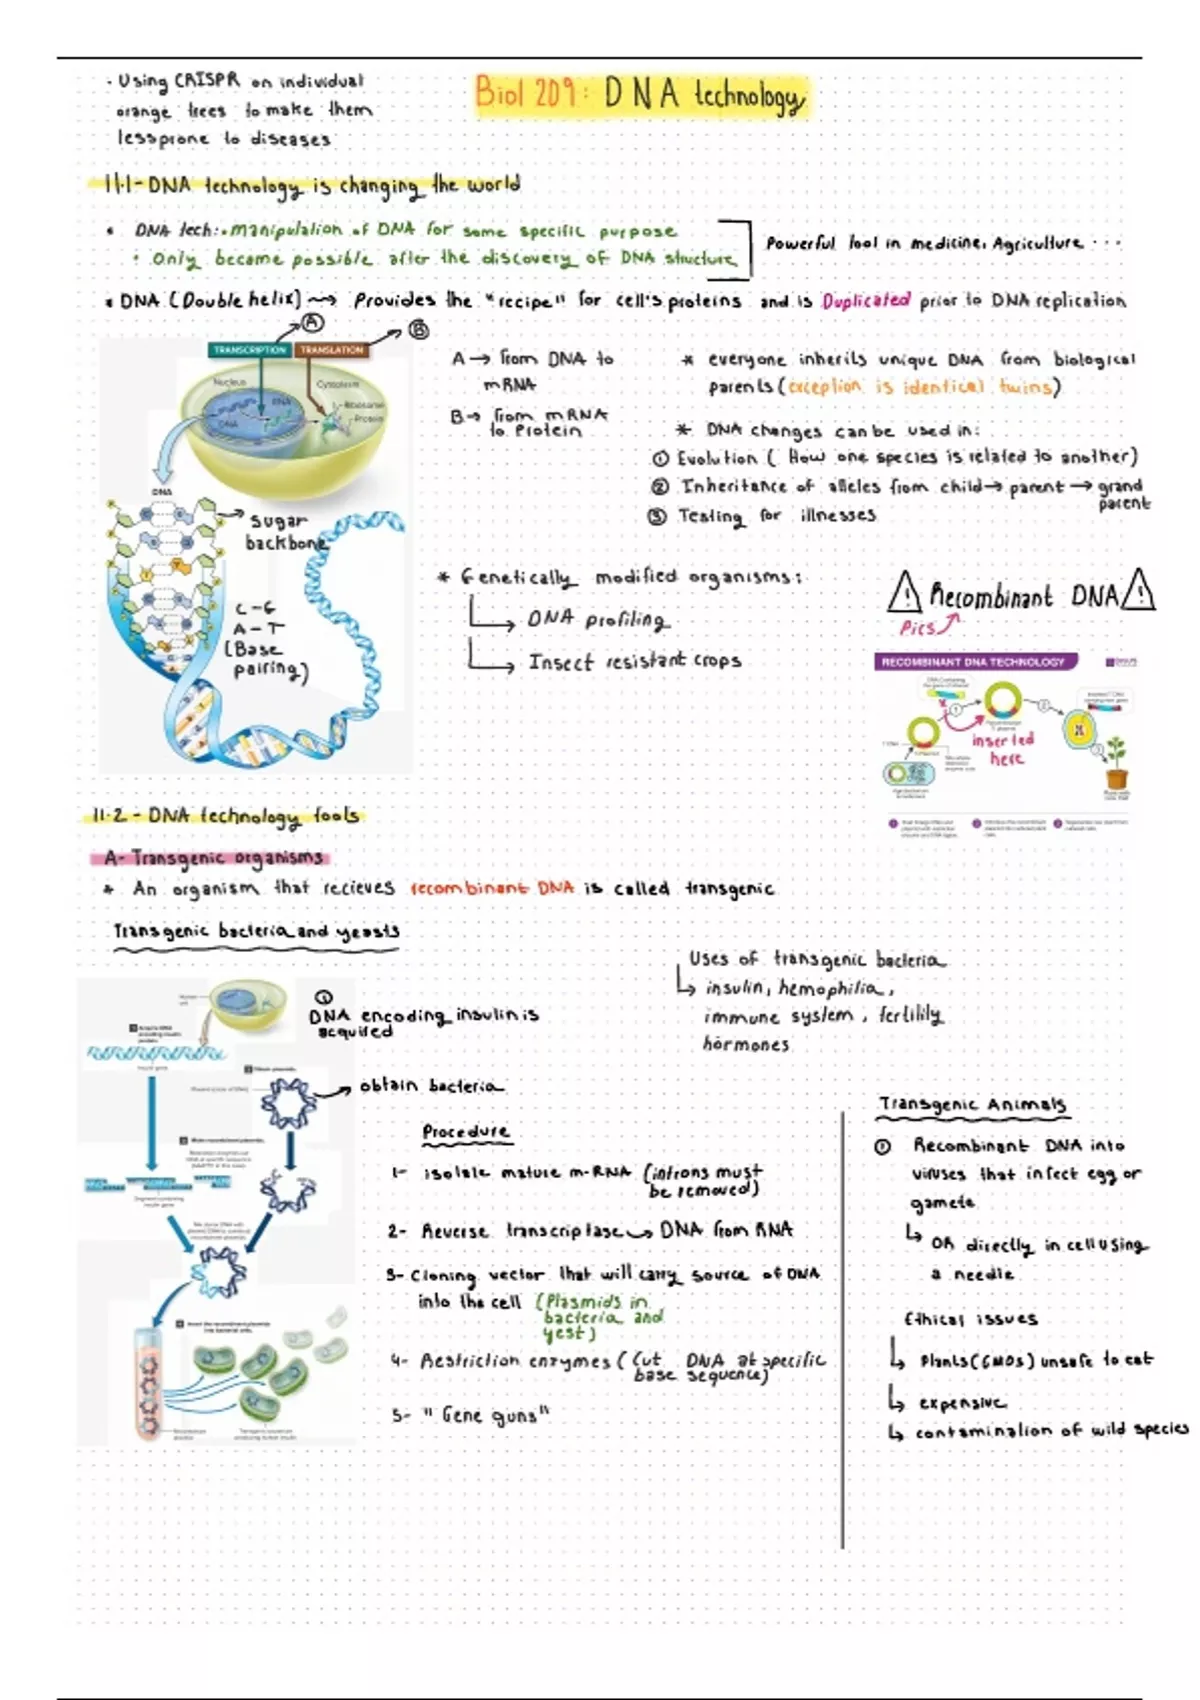 · Using CRISPR on individual
orange trees to make them
less prone to diseases
Biol 209: DNA technology
11.1 - DNA technology is changing the world
• DNA tech: • manipulation of DNA for some specific purpose
• Only became possible after the discovery of DNA structure
Powerful tool in medicine, Agriculture ...
• DNA (Double helix) → Provides the "recipe" for cell's proteins and is Duplicated prior to DNA replication
A
B
TRANSCRIPTION TRANSLATION
Nucleus
Cytoplasm
RNA
Ribosome
DNA
Protein
DNA
→ Sugar
backbone
C - G
A - T
(Base
pairing)
A → from DNA to
mRNA
B → from mRNA
to Protein
* everyone inherits unique DNA from biological
parents (exception is identical twins)
* DNA changes can be used in:
① Evolution ( How one species is related to another)
② Inheritance of alleles from child → parent → grand
parent
③ Testing for illnesses
* Genetically modified organisms:
↳ DNA profiling
↳ Insect resistant crops
! Recombinant DNA !
Pics
RECOMBINANT DNA TECHNOLOGY
1
2
3
inserted
here
11.2 - DNA technology tools
A- Transgenic organisms
* An organism that recieves recombinant DNA is called transgenic
Transgenic bacteria and yeasts
①
DNA encoding insulin is
acquired
→ obtain bacteria
Uses of transgenic bacteria
↳ insulin, hemophilia,
immune system, fertility
hormones
Procedure
1- isolate mature m-RNA (introns must
be removed)
2- Reverse transcriptase → DNA from RNA
3- Cloning vector that will carry source of DNA
into the cell (Plasmids in
bacteria and
yest)
4- Restriction enzymes ( Cut DNA at specific
base sequence)
5- "Gene guns"
Transgenic Animals
① Recombinant DNA into
viruses that infect egg or
gamete
↳ OR directly in cell using
a needle
Ethical issues
↳ Plants (GMOs) unsafe to eat
↳ expensive
↳ contamination of wild species